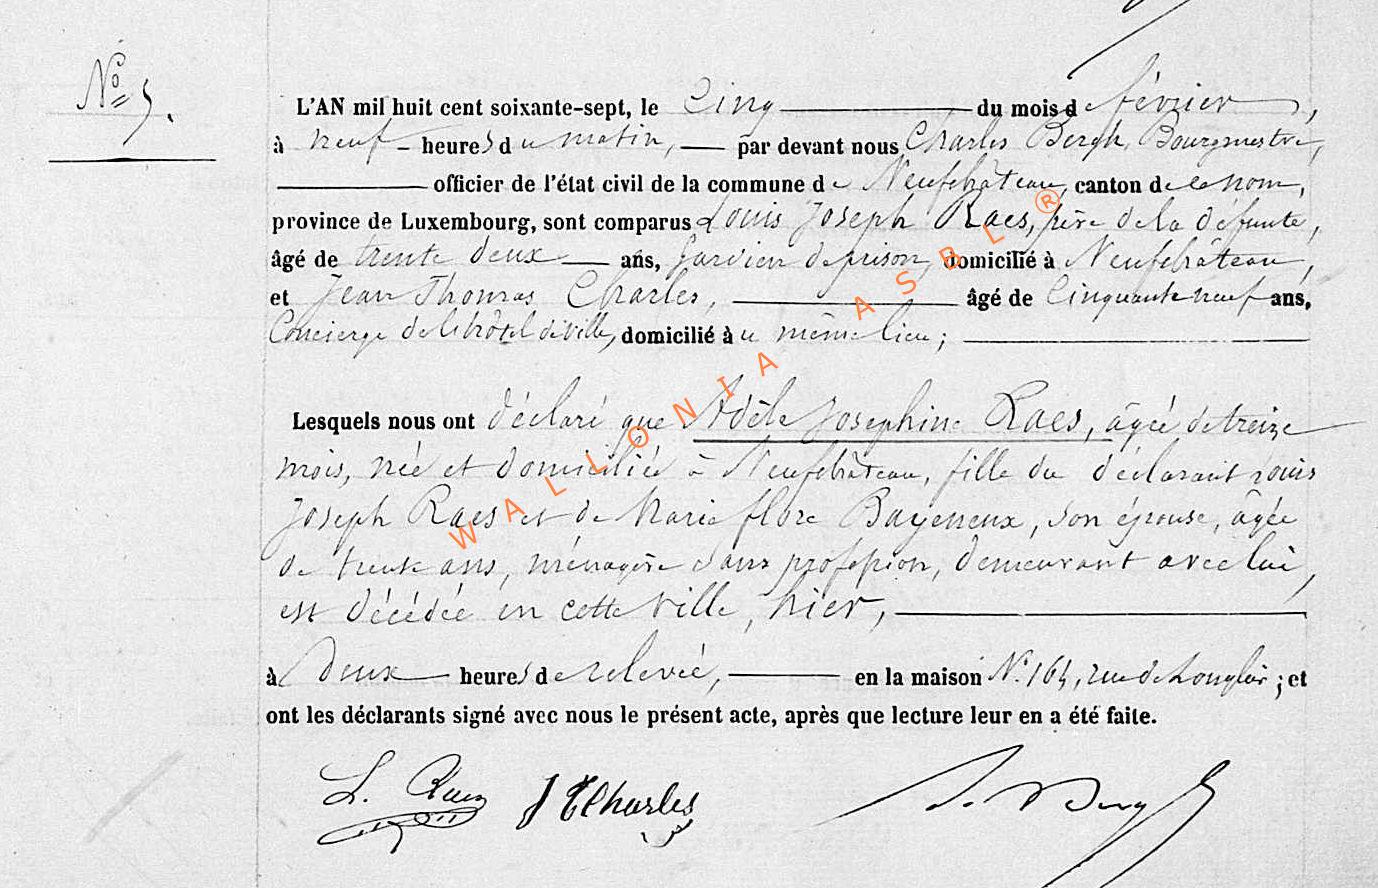 N° 5.
L'AN mil huit cent soixante-sept, le Cinq du mois de février,
à neuf heures du matin, par devant nous Charles Bergh, Bourgmestre,
officier de l'état civil de la commune de Neufchâteau, canton de ce nom,
province de Luxembourg, sont comparus Louis Joseph Raes, père de la défunte,
âgé de trente deux ans, Gardien de prison, domicilié à Neufchâteau,
et Jean Thomas Charles, âgé de Cinquante neuf ans,
Concierge de l'hôtel de ville, domicilié à u même lieu;
Lesquels nous ont déclaré que Adèle Josephine Raes, âgée de treize
mois, née et domiciliée à Neufchâteau, fille du déclarant Louis
Joseph Raes et de Marie flore Bayeneux, son épouse, âgée
de trente ans, ménagère sans profession, demeurant avec lui,
est décédée en cette ville, hier,
à Deux heures de relevée, en la maison N° 164, rue de Longlier; et
ont les déclarants signé avec nous le présent acte, après que lecture leur en a été faite.
L. Raes JTCharles
WALLONIA ASBL ®